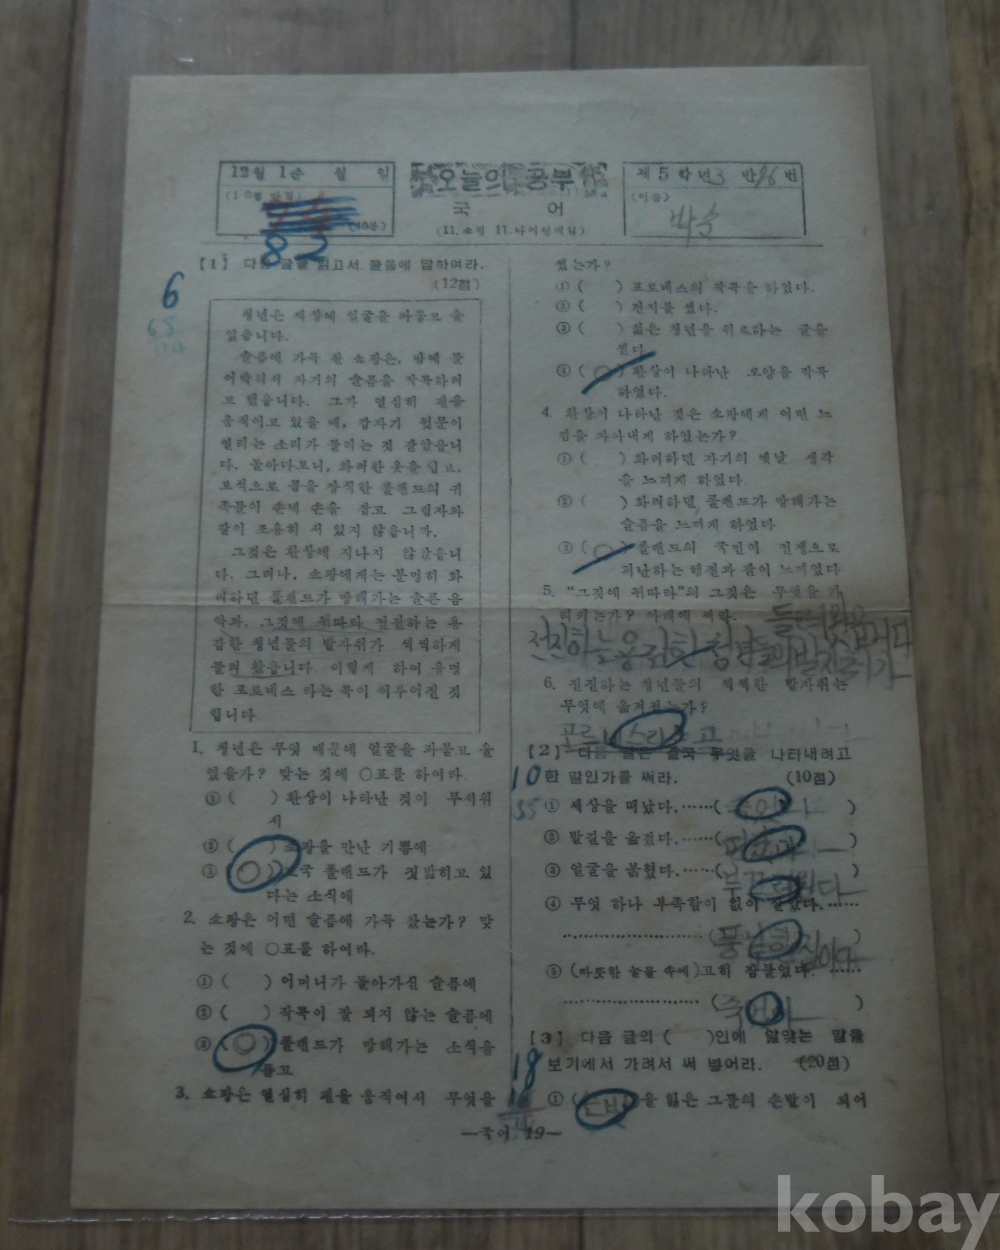 12월 1순 월 일
오늘의 공부
국 어
(11. 쇼팡 11. 나이팅게일)
제 5 학년 3 반 96 번
(이름)
박
82
【1】 다음 글을 읽고서 물음에 답하여라.
(12점)
6
청년은 책상에 얼굴을 파묻고 울
었습니다.
슬픔에 가득 찬 쇼팡은, 밤에 틀
어박혀서 자기의 슬픔을 작곡하려
고 했습니다. 그가 열심히 펜을
움직이고 있을 때, 갑자기 뒷문이
열리는 소리가 들리는 것 같았읍니
다. 돌아다보니, 화려한 옷을 입고,
보석으로 몸을 장식한 폴랜드의 귀
족들이 손에 손을 잡고 그림자와
같이 조용히 서 있지 않읍니까.
그것은 환상에 지나지 않았읍니
다. 그러나, 쇼팡에게는 분명히 화
려하던 폴랜드가 망해가는 슬픈 음
악과, 그것에 뒤따라 전진하는 용
감한 청년들의 발자취가 씩씩하게
들려 왔습니다. 이렇게 하여 유명
한 포로네스 라는 곡이 이루어진 것
입니다.
1. 청년은 무엇 때문에 얼굴을 파묻고 울
었을가? 맞는 것에 ○표를 하여라.
① ( ) 환상이 나타난 것이 무서워
서
② ( ) 쇼팡을 만난 기쁨에
③ (○) 조국 폴랜드가 짓밟히고 있
다는 소식에
2. 쇼팡은 어떤 슬픔에 가득 찼는가? 맞
는 것에 ○표를 하여라.
① ( ) 어머니가 돌아가신 슬픔에
② ( ) 작곡이 잘 되지 않는 슬픔에
③ (○) 폴랜드가 망해가는 소식을
듣고
3. 쇼팡은 열심히 펜을 움직여서 무엇을
썼는가?
① ( ) 포로네스의 작곡을 하였다.
② ( ) 편지를 썼다.
③ ( ) 젊은 청년을 위로하는 글을
썼다.
④ (○) 환상이 나타난 모양을 작곡
하였다.
4. 환상이 나타난 것은 쇼팡에게 어떤 느
낌을 자아내게 하였는가?
① ( ) 화려하던 자기의 옛날 생각
을 느끼게 하였다.
② ( ) 화려하던 폴랜드가 망해가는
슬픔을 느끼게 하였다.
③ (○) 폴랜드의 국민이 전쟁으로
피난하는 행진과 같이 느끼었다
5. "그것에 뒤따라"의 그것은 무엇을 가
리키는가? 아래에 써라.
전진하는 용감한 청년들의 발자취가
6. 전진하는 청년들의 씩씩한 발자취는
무엇에 옮겨졌는가?
【2】 다음 말은 결국 무엇을 나타내려고
10
한 말인가를 써라. (10점)
① 세상을 떠났다.……( )
② 발길을 옮겼다.……( )
③ 얼굴을 붉혔다.……(부끄러웠다
④ 무엇 하나 부족함이 없이 살았다.……
……………………(풍부한 집이다
⑤ (따뜻한 눈물 속에)고히 잠들었다.……
……………………(죽었다 )
【3】 다음 글의 ( )안에 알맞는 말을
18
보기에서 가려서 써 넣어라. (20점)
① ( )을 잃은 그들의 손발이 되어
—국어 19—
kobay